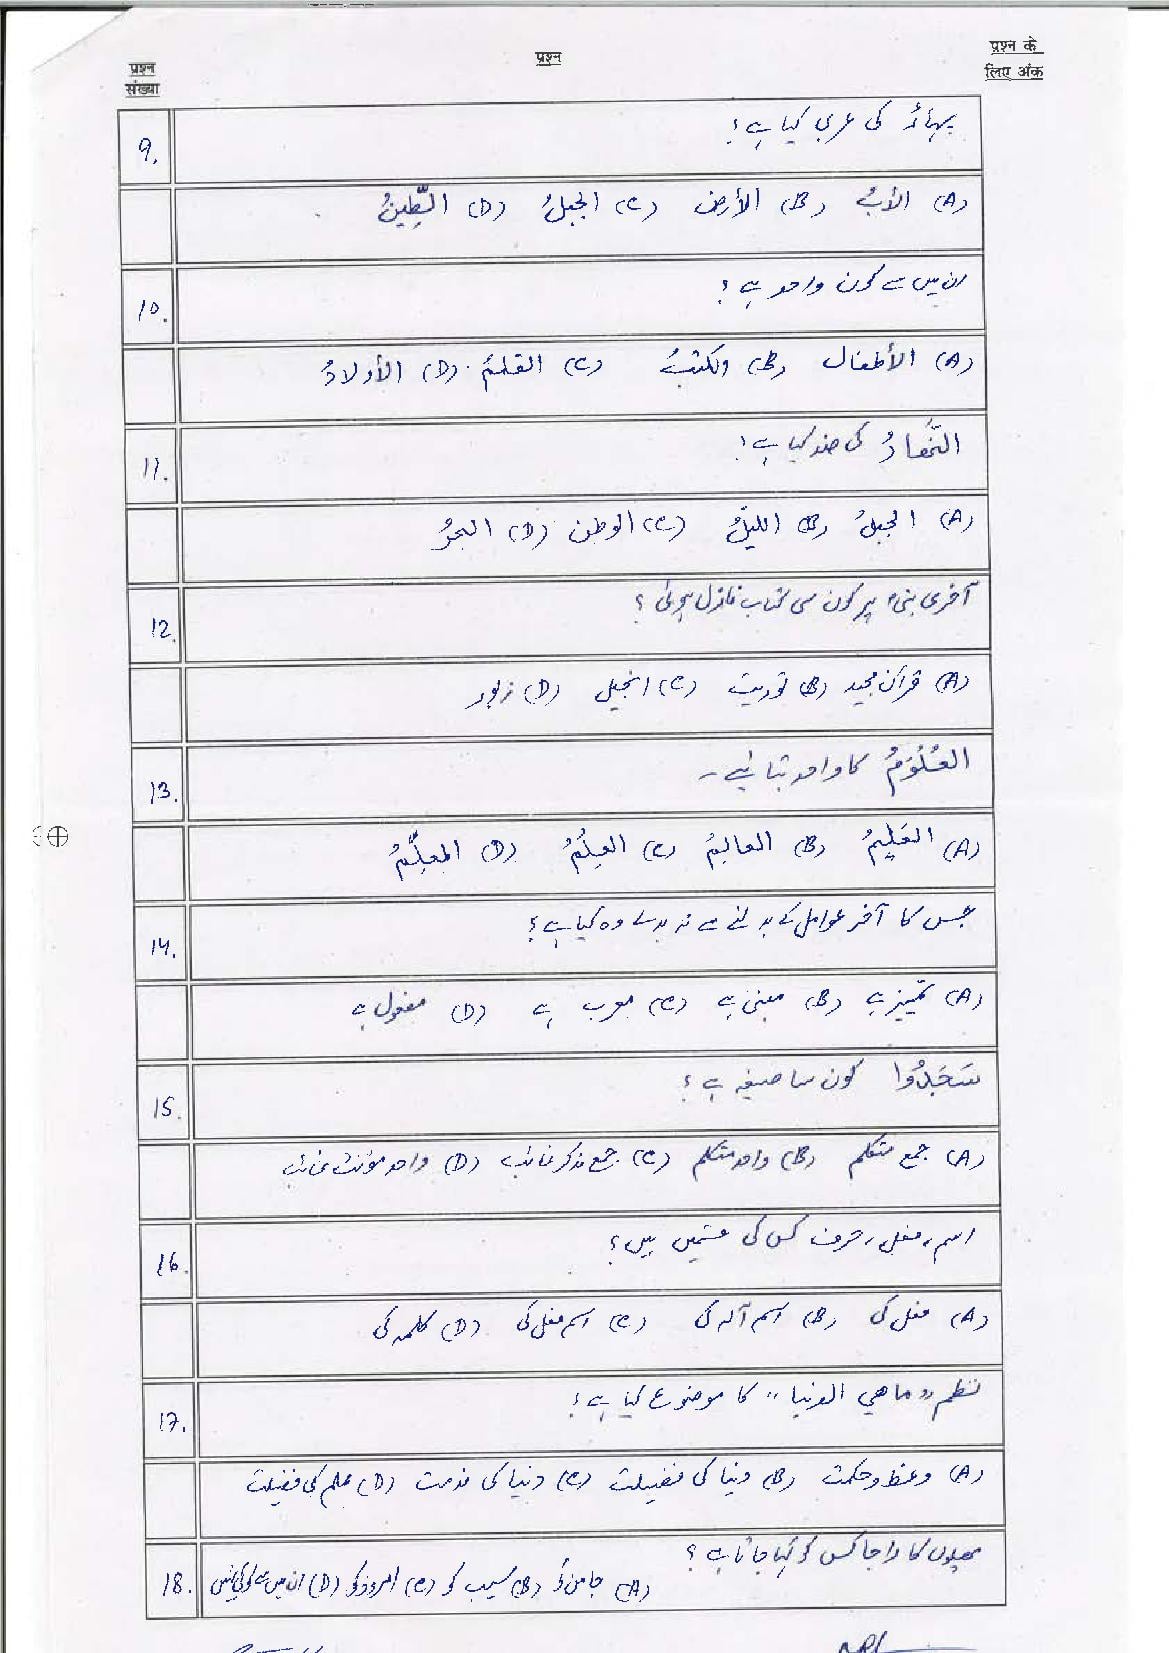 प्रश्न संख्या
प्रश्न
प्रश्न के लिए अंक
9.
پہاڑ کی عربی کیا ہے؟
(A) الأبُ (B) الأرض (C) الجبلُ (D) الطِّينُ
10.
ان میں سے کون واحد ہے؟
(A) الأطفال (B) والكتبُ (C) القلمُ (D) الأولادُ
11.
النَّهارُ کی ضد کیا ہے؟
(A) الجبلُ (B) الليلُ (C) الوطن (D) البحرُ
12.
آخری نبیؐ پر کون سی کتاب نازل ہوئی؟
(A) قرآن مجید (B) توریت (C) انجیل (D) زبور
13.
العُلُوْمُ کا واحد بتائیے۔
(A) العَلِيمُ (B) العالِمُ (C) العِلْمُ (D) المعلِّمُ
14.
جس کا آخر عوامل کے بدلنے سے نہ بدلے وہ کیا ہے؟
(A) تمییز ہے (B) مبنی ہے (C) معرب ہے (D) مفعول ہے
15.
سَجَدُوا کون سا صیغہ ہے؟
(A) جمع متکلم (B) واحد متکلم (C) جمع مذکر غائب (D) واحد مؤنث غائب
16.
اسم، فعل، حرف کس کی قسمیں ہیں؟
(A) فعل کی (B) اسم آلہ کی (C) اسم فعل کی (D) کلمہ کی
17.
نظم "ماهي الدنيا" کا موضوع کیا ہے؟
(A) وعظ و حکمت (B) دنیا کی فضیلت (C) دنیا کی مذمت (D) علم کی فضیلت
18.
پھلوں کا راجا کس کو کہا جاتا ہے؟
(A) جامن کو (B) سیب کو (C) امرود کو (D) ان میں سے کوئی نہیں